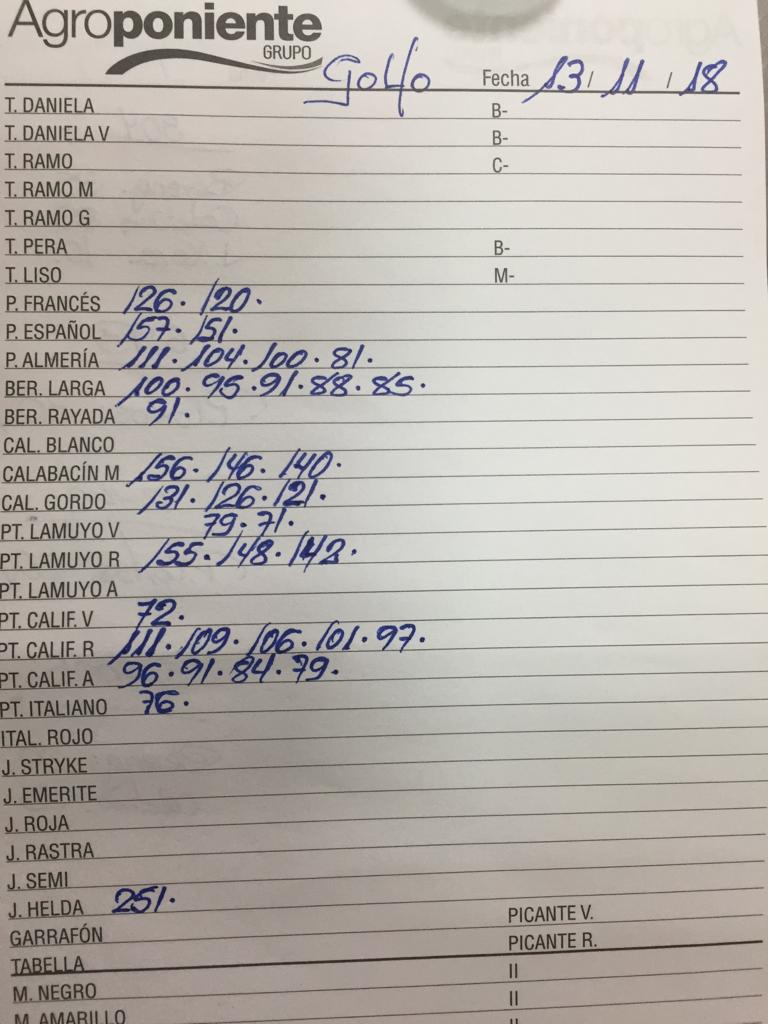 Agroponiente
GRUPO
Golfo Fecha 13/ 11 / 18
T. DANIELA B-
T. DANIELA V B-
T. RAMO C-
T. RAMO M
T. RAMO G
T. PERA B-
T. LISO M-
P. FRANCÉS 126. 120.
P. ESPAÑOL 157. 151.
P. ALMERÍA 111. 104. 100. 81.
BER. LARGA 100. 95. 91. 88. 85.
BER. RAYADA 91.
CAL. BLANCO
CALABACÍN M 156. 146. 140.
CAL. GORDO 131. 126. 121.
PT. LAMUYO V 79. 71.
PT. LAMUYO R 155. 148. 142.
PT. LAMUYO A
PT. CALIF. V 72.
PT. CALIF. R 111. 109. 106. 101. 97.
PT. CALIF. A 96. 91. 84. 79.
PT. ITALIANO 76.
ITAL. ROJO
J. STRYKE
J. EMERITE
J. ROJA
J. RASTRA
J. SEMI
J. HELDA 251.
GARRAFÓN PICANTE V.
TABELLA PICANTE R.
M. NEGRO II
M. AMARILLO II